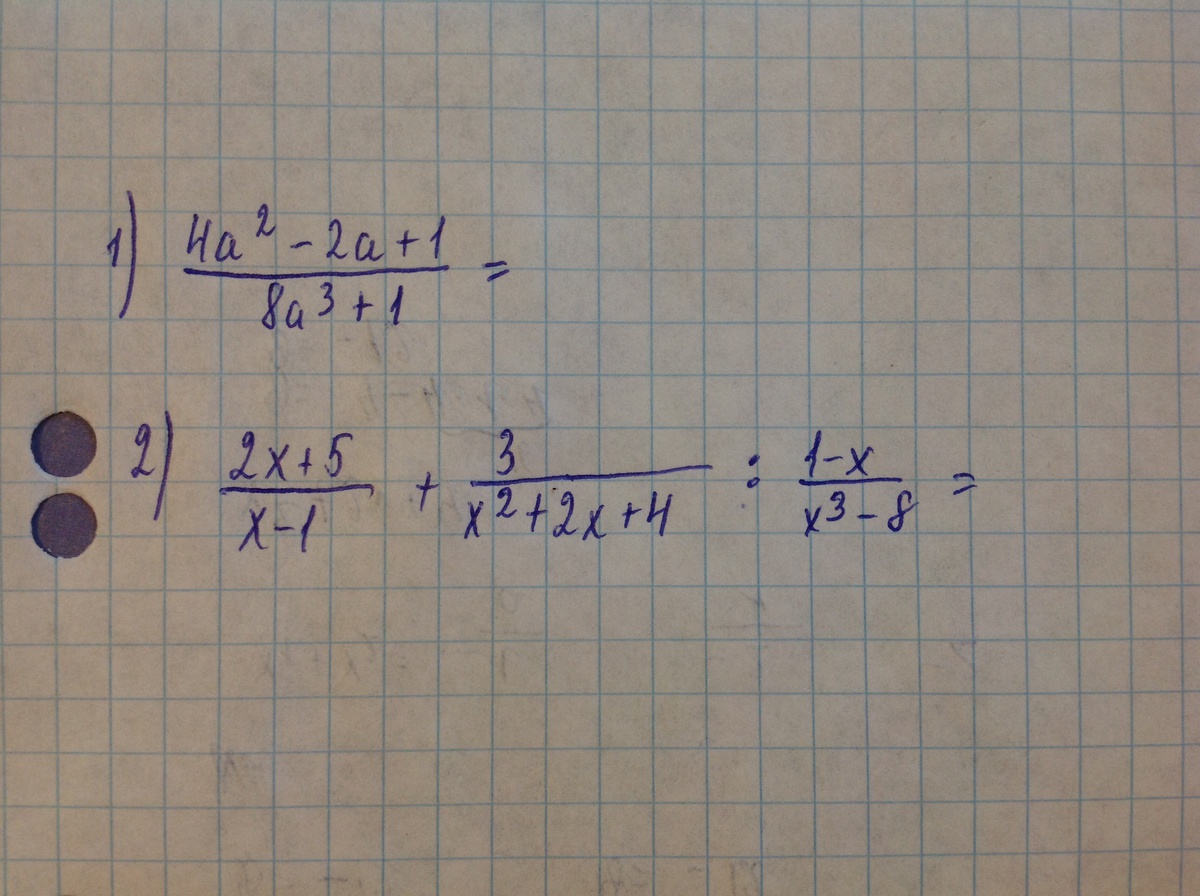 1) (4a² - 2a + 1)/(8a³ + 1) =
2) (2x + 5)/(x - 1) + 3/(x² + 2x + 4) : (1 - x)/(x³ - 8) =